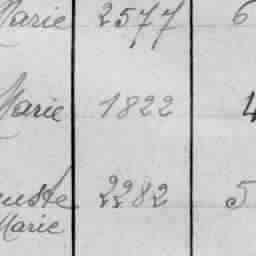 Marie 2577 6
Marie 1822 4
2282 5
Marie